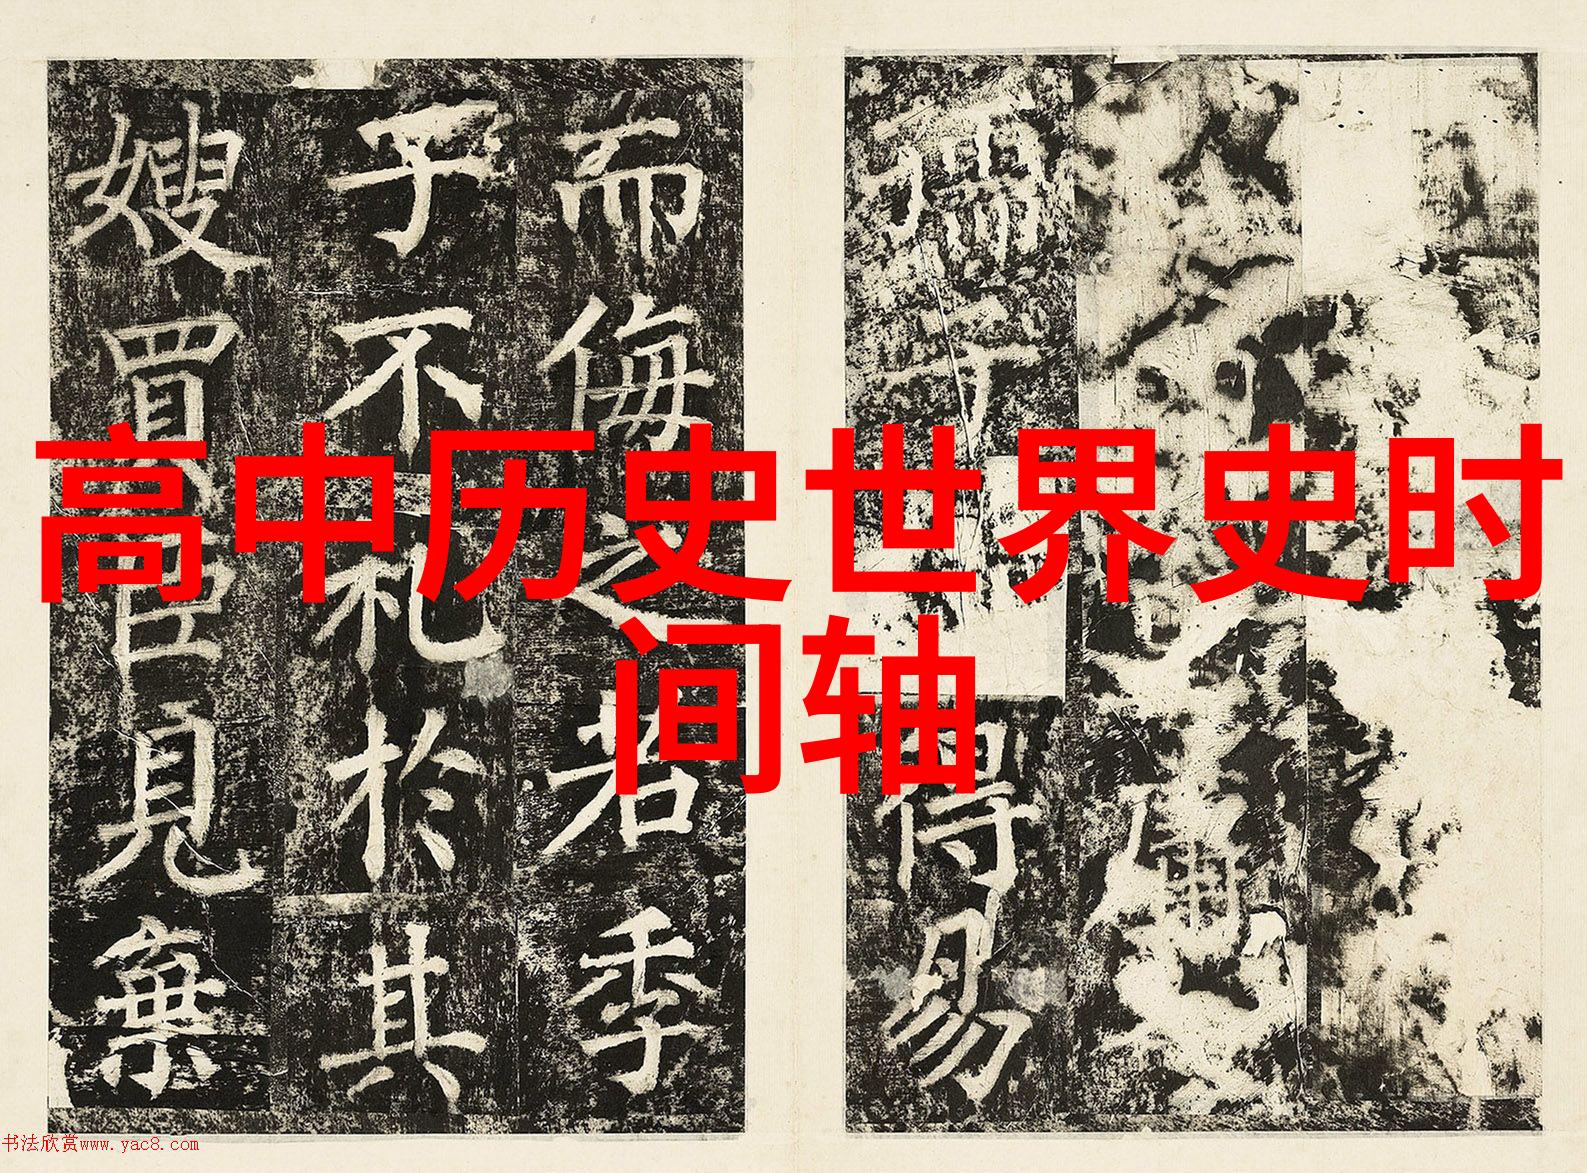 高中历史世界史时
间轴
得易
而侮之若季
子不礼於其
嫂買臣見棄
书法欣赏www.yac8.com